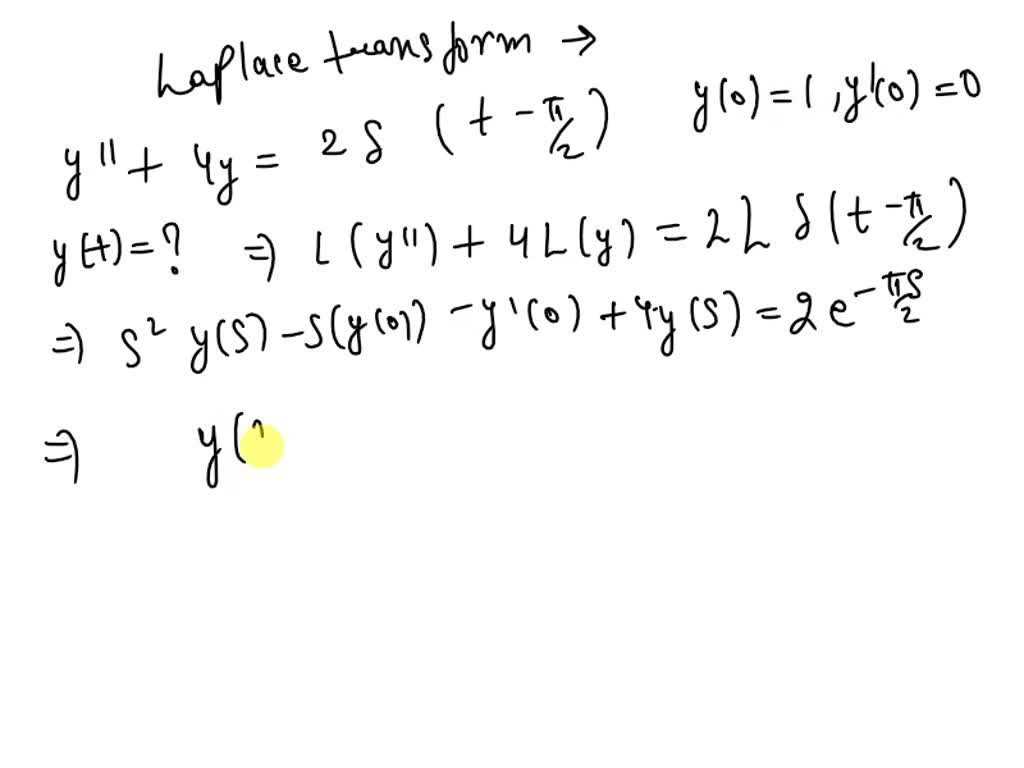 Laplace transform →
y'' + 4y = 2 δ (t - π/2) y(0) = 1, y'(0) = 0
y(t) = ? ⇒ L(y'') + 4L(y) = 2L δ(t - π/2)
⇒ s² y(s) - s(y(0)) - y'(0) + 4y(s) = 2e^{-πs/2}
⇒ y(